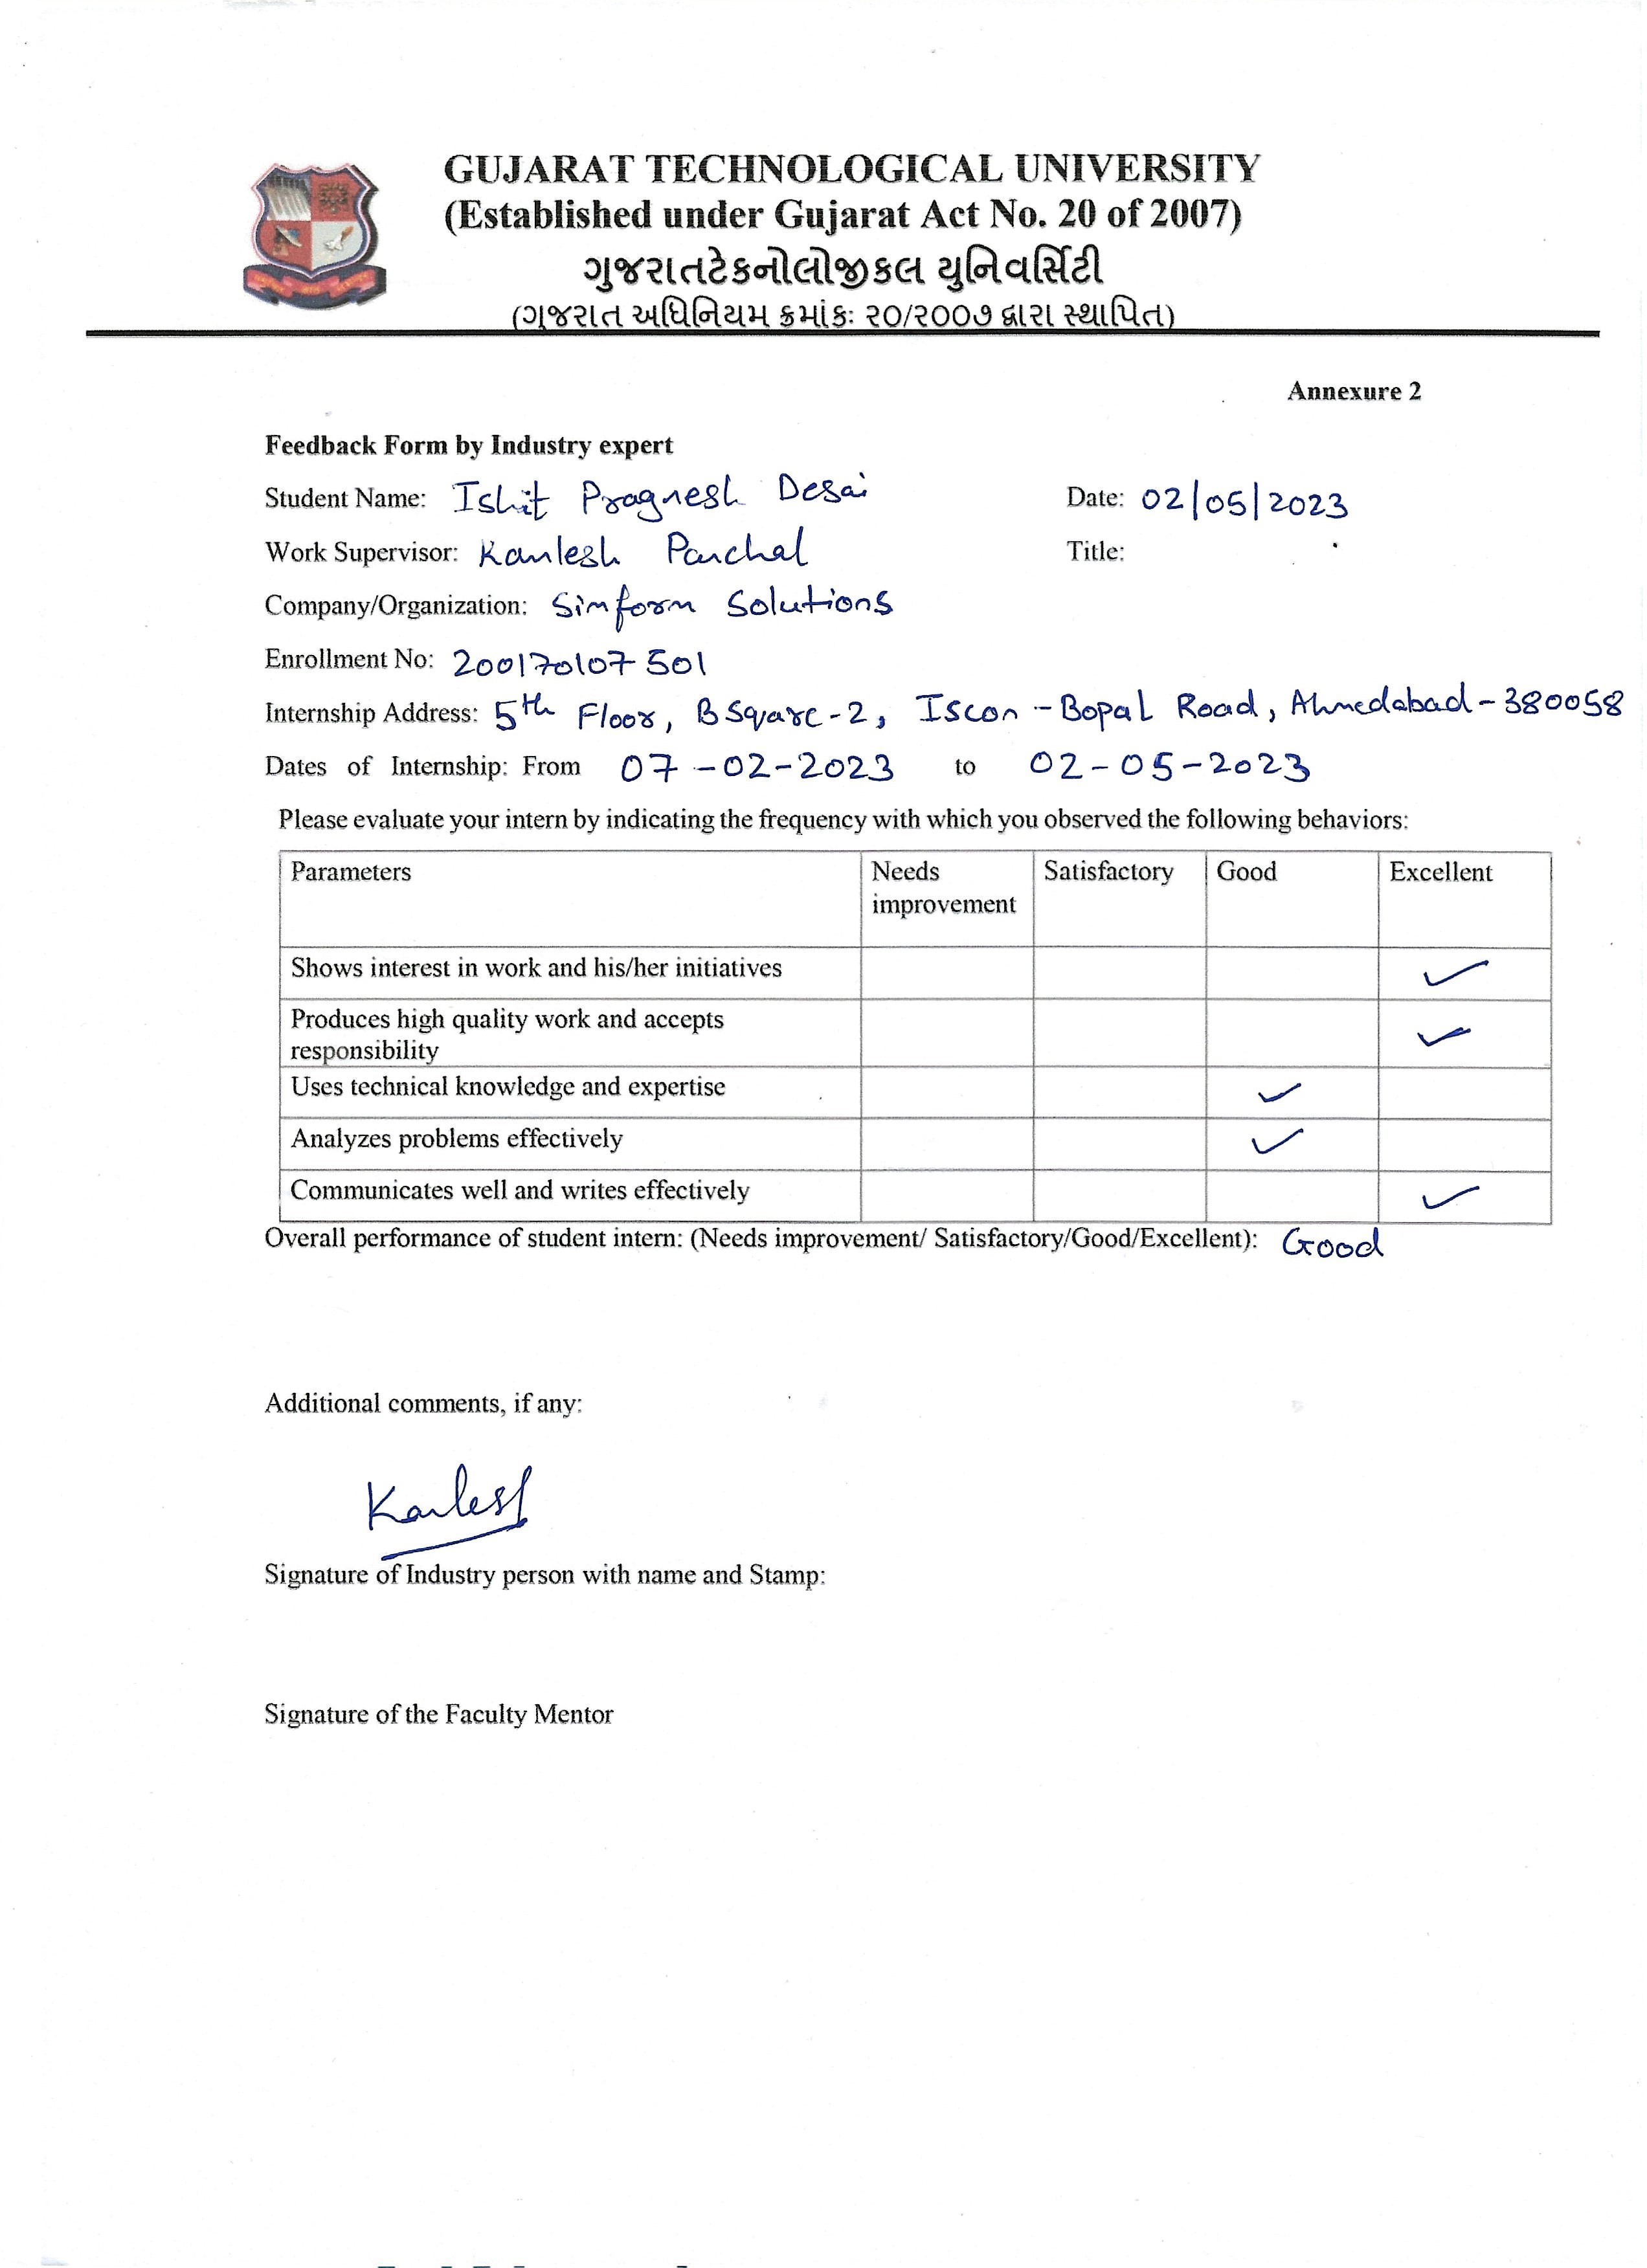 GUJARAT TECHNOLOGICAL UNIVERSITY
(Established under Gujarat Act No. 20 of 2007)
ગુજરાતટેકનોલોજીકલ યુનિવર્સિટી
(ગુજરાત અધિનિયમ ક્રમાંકઃ ૨૦/૨૦૦૭ દ્વારા સ્થાપિત)
Annexure 2
Feedback Form by Industry expert
Student Name: Ishit Pragnesh Desai Date: 02/05/2023
Work Supervisor: Kamlesh Panchal Title:
Company/Organization: Simform Solutions
Enrollment No: 200170107501
Internship Address: 5th Floor, B Square-2, Iscon - Bopal Road, Ahmedabad - 380058
Dates of Internship: From 07-02-2023 to 02-05-2023
Please evaluate your intern by indicating the frequency with which you observed the following behaviors:
Parameters Needs improvement Satisfactory Good Excellent
Shows interest in work and his/her initiatives ✓
Produces high quality work and accepts
responsibility ✓
Uses technical knowledge and expertise ✓
Analyzes problems effectively ✓
Communicates well and writes effectively ✓
Overall performance of student intern: (Needs improvement/ Satisfactory/Good/Excellent): Good
Additional comments, if any:
Kamlesh
Signature of Industry person with name and Stamp:
Signature of the Faculty Mentor